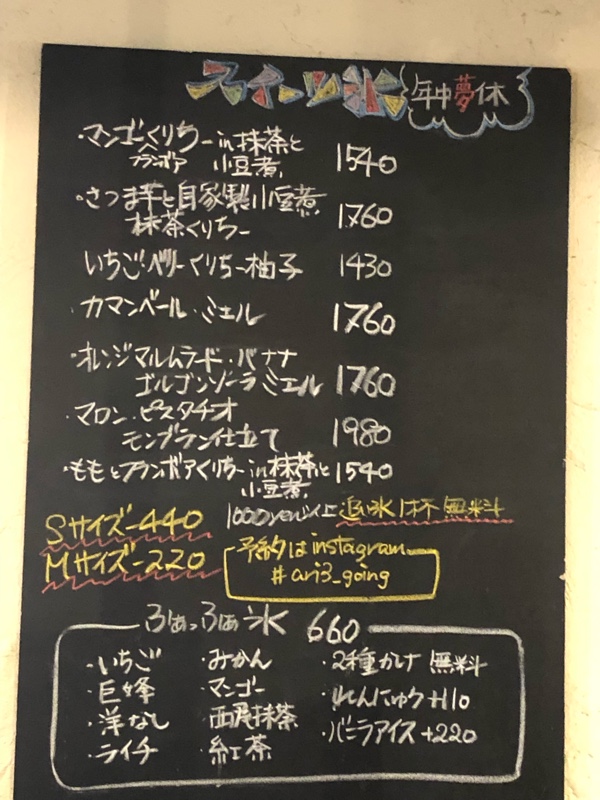 スイーツ氷 年中夢休
・マンゴーくりちー in 抹茶と 1540
フランボア 小豆煮
・さつま芋と自家製小豆煮 1760
抹茶くりちー
いちごベリーくりちー柚子 1430
・カマンベール・ミエル 1760
・オレンジマルムラード・バナナ
ゴルゴンゾーラ ミエル 1760
・マロン・ピスタチオ
モンブラン仕立て 1980
・ももとフランボアくりちー in 抹茶と 1540
小豆煮
1000yen以上 追い氷1杯無料
Sサイズ-440
Mサイズ-220
予約はinstagram
# ari3_going
ふぁっふぁ氷 660
・いちご ・みかん ・2種かけ 無料
・巨峰 ・マンゴー ・れんにゅう +110
・洋なし ・西尾抹茶 ・バニラアイス +220
・ライチ ・紅茶